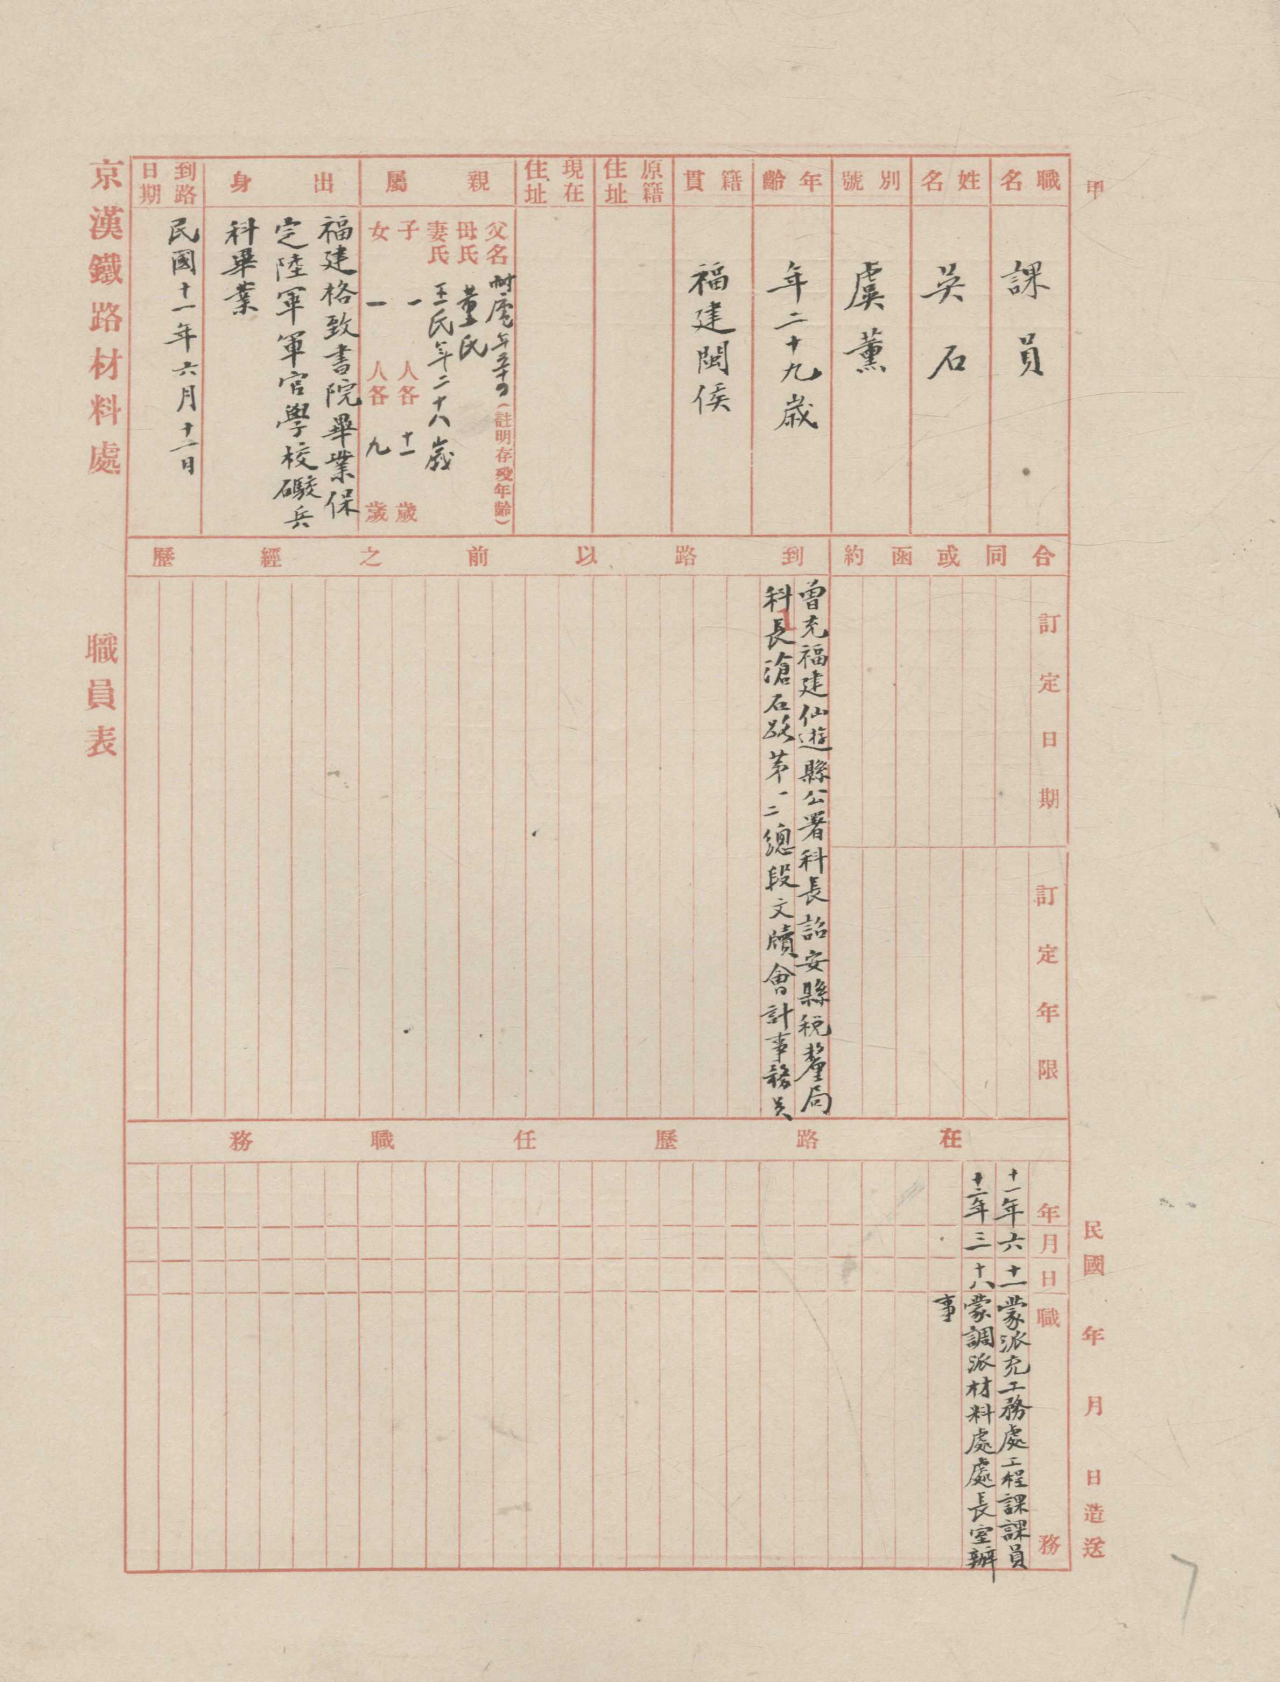 甲
職名
課員
姓名
吳石
別號
虞薰
年齡
年二十九歲
籍貫
福建閩侯
原籍住址
現在住址
親屬
父名 年五十四(註明存歿年齡)
母氏 董氏
妻氏 王氏年二十八歲
子 一 人各 十一 歲
女 一 人各 九 歲
出身
福建格致書院畢業保
定陸軍軍官學校礮兵
科畢業
到路日期
民國十一年六月十一日
京漢鐵路材料處 職員表
合同或函約
訂定日期
訂定年限
到路以前之經歷
曾充福建仙遊縣公署科長詔安縣稅釐局
科長滄石路第一二總段文牘會計事務員
在路歷任職務
年月日職務
十一年六十一蒙派充工務處工程課課員
十二年三十八蒙調派材料處處長室辦
事
民國 年 月 日造送
7